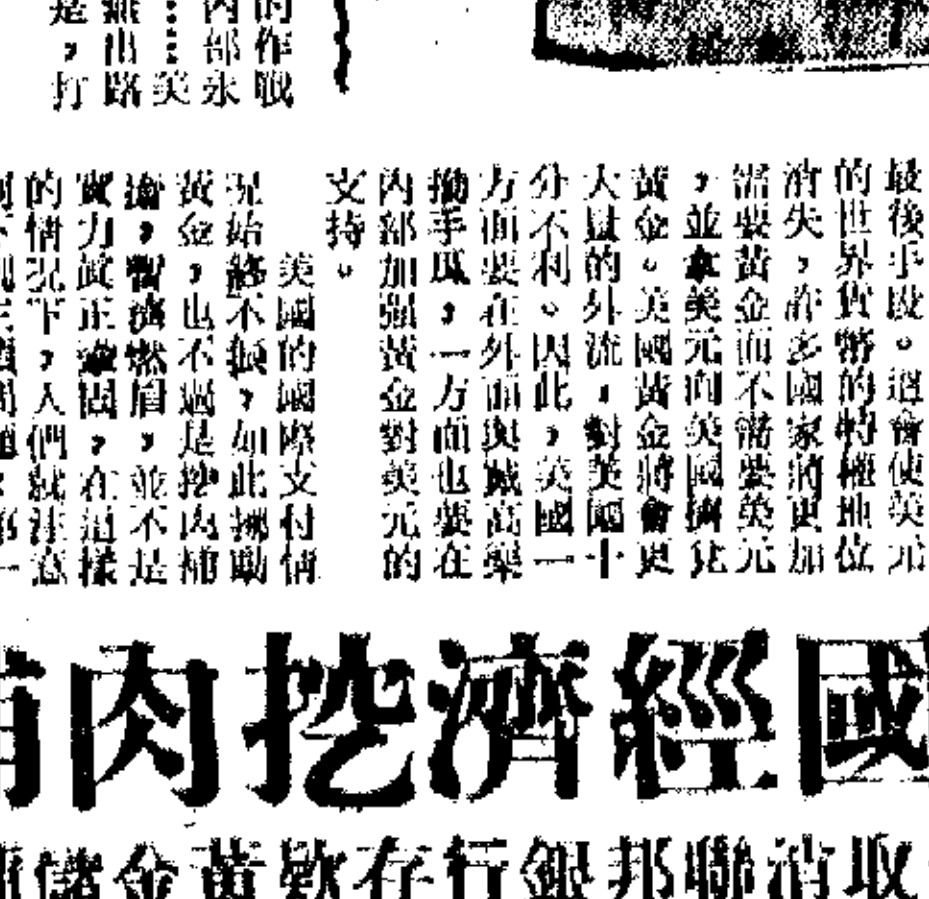 的作戰
內部永
⋮⋮美
無出路
是，打
最後手段。這會使美元
的世界貨幣的特權地位
消失，許多國家將更加
需要黃金而不需要美元
，並拿美元向美國擠兌
黃金。美國黃金將會更
大量的外流，對美國十
分不利。因此，美國一
方面要在外面與戴高樂
拗手瓜，一方面也要在
內部加强黃金對美元的
支持。
美國的國際支付情
況始終不振，如此挪動
黃金，也不過是挖肉補
瘡，暫濟燃眉，並不是
實力眞正鞏固，在這樣
的情況下，人們就注意
國經濟挖肉
取消聯邦銀行存款黃金儲